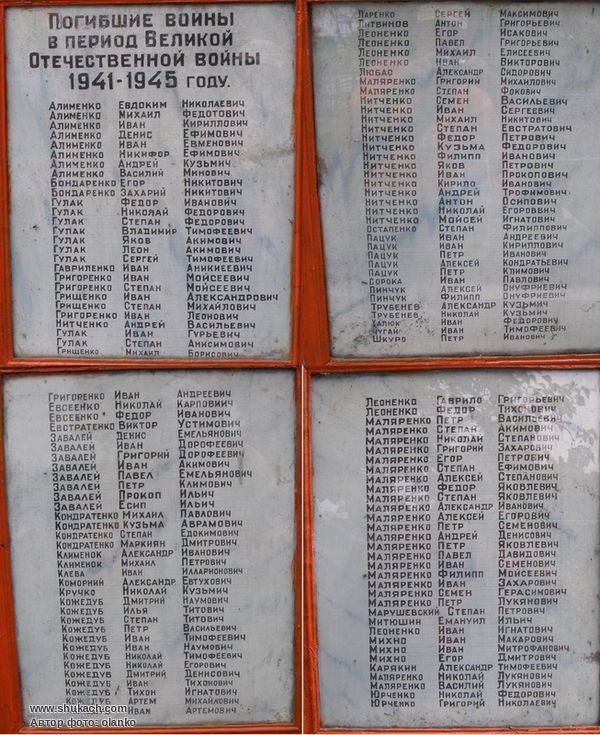 Погибшие воины
в период Великой
Отечественной войны
1941-1945 году.
Алименко Евдоким Николаевич
Алименко Михаил Федотович
Алименко Иван Кириллович
Алименко Денис Ефимович
Алименко Иван Евменович
Алименко Никифор Ефимович
Алименко Андрей Кузьмич
Алименко Василий Минович
Бондаренко Егор Никитович
Бондаренко Захарий Никитович
Гулак Федор Иванович
Гулак Николай Федорович
Гулак Степан Федорович
Гулак Владимир Тимофеевич
Гулак Яков Акимович
Гулак Леон Акимович
Гулак Сергей Тимофеевич
Гавриленко Иван Аникиевич
Григоренко Иван Моисеевич
Григоренко Степан Моисеевич
Грищенко Иван Александрович
Грищенко Степан Михайлович
Григоренко Иван Леонович
Нитченко Андрей Васильевич
Гулак Иван Гурьевич
Гулак Степан Анисимович
Грищенко Михаил Борисович
Ларенко Сергей Максимович
Литвинов Антон Григорьевич
Леоненко Егор Исакович
Леоненко Павел Григорьевич
Леоненко Михаил Елисеевич
Леоненко Иван Викторович
Любас Александр Сидорович
Маляренко Григорий Михайлович
Маляренко Степан Фокович
Нитченко Семен Васильевич
Нитченко Иван Сергеевич
Нитченко Михаил Никитович
Нитченко Степан Евстратович
Нитченко Федор Петрович
Нитченко Кузьма Федорович
Нитченко Филипп Иванович
Нитченко Яков Петрович
Нитченко Иван Прокопович
Нитченко Кирило Иванович
Нитченко Андрей Трофимович
Нитченко Антон Осипович
Нитченко Николай Егорович
Нитченко Моисей Игнатович
Остапенко Степан Филиппович
Пацук Иван Андреевич
Пацук Иван Кириллович
Пацук Петр Иванович
Пацук Алексей Кондратьевич
Пацук Петр Климович
Сорока Иван Павлович
Пинчук Алексей Онуфриевич
Пинчук Филипп Онуфриевич
Трубенев Александр Кузьмич
Трубенев Николай Кузьмич
Халюк Иван Федорович
Чугай Иван Тимофеевич
Шкуро Петр Иванович
Григоренко Иван Андреевич
Евсеенко Николай Карпоиич
Евсеенко Федор Иванович
Евстратенко Виктор Устимович
Завалей Денис Емельянович
Завалей Иван Дорофеевич
Завалей Григорий Дорофеевич
Завалей Иван Акимович
Завалей Павел Емельянович
Завалей Петр Климович
Завалей Прокоп Ильич
Завалей Есип Ильич
Кондратенко Михаил Павлович
Кондратенко Кузьма Аврамович
Кондратенко Степан Евдокимович
Кондратенко Маркиян Дмитрович
Клименок Александр Иванович
Клименок Михаил Петрович
Клева Иван Илларионович
Коморний Александр Евтухович
Кручко Николай Кузьмич
Кожедуб Дмитрий Наумович
Кожедуб Илья Титович
Кожедуб Степан Титович
Кожедуб Петр Васильевич
Кожедуб Иван Тимофеевич
Кожедуб Иван Наумович
Кожедуб Николай Тимофеевич
Кожедуб Николай Егорович
Кожедуб Дмитрий Денисович
Кожедуб Иван Тихонович
Кожедуб Тихон Игнатович
Кожедуб Артем Михайлович
Иван Артемович
Леоненко Гаврило Григорьевич
Леоненко Федор Тихонович
Маляренко Петр Васильевич
Маляренко Степан Акимович
Маляренко Николай Степанович
Маляренко Григорий Захарович
Маляренко Егор Петрович
Маляренко Степан Ефимович
Маляренко Алексей Степанович
Маляренко Федор Яковлевич
Маляренко Степан Яковлевич
Маляренко Александр Иванович
Маляренко Алексей Егорович
Маляренко Петр Семенович
Маляренко Андрей Денисович
Маляренко Петр Яковлевич
Маляренко Павел Давидович
Маляренко Иван Семенович
Маляренко Филипп Моисеевич
Маляренко Иван Захарович
Маляренко Семен Герасимович
Маляренко Петр Лукянович
Марушевский Степан Петрович
Митюшин Емануил Ильич
Леоненко Иван Игнатович
Михно Иван Макарович
Михно Иван Митрофанович
Михно Егор Дмитрович
Карякин Александр Тимофеевич
Маляренко Николай Лукянович
Маляренко Василий Лукянович
Юрченко Николай Федорович
Юрченко Григорий Николаевич
www.shukach.com
Автор фото: olanko